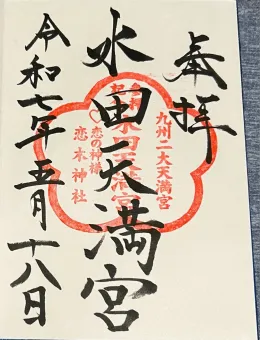 奉拝
九州二大天満宮
水田天満宮
水田天満宮
恋の神様
恋木神社
令和七年五月十八日